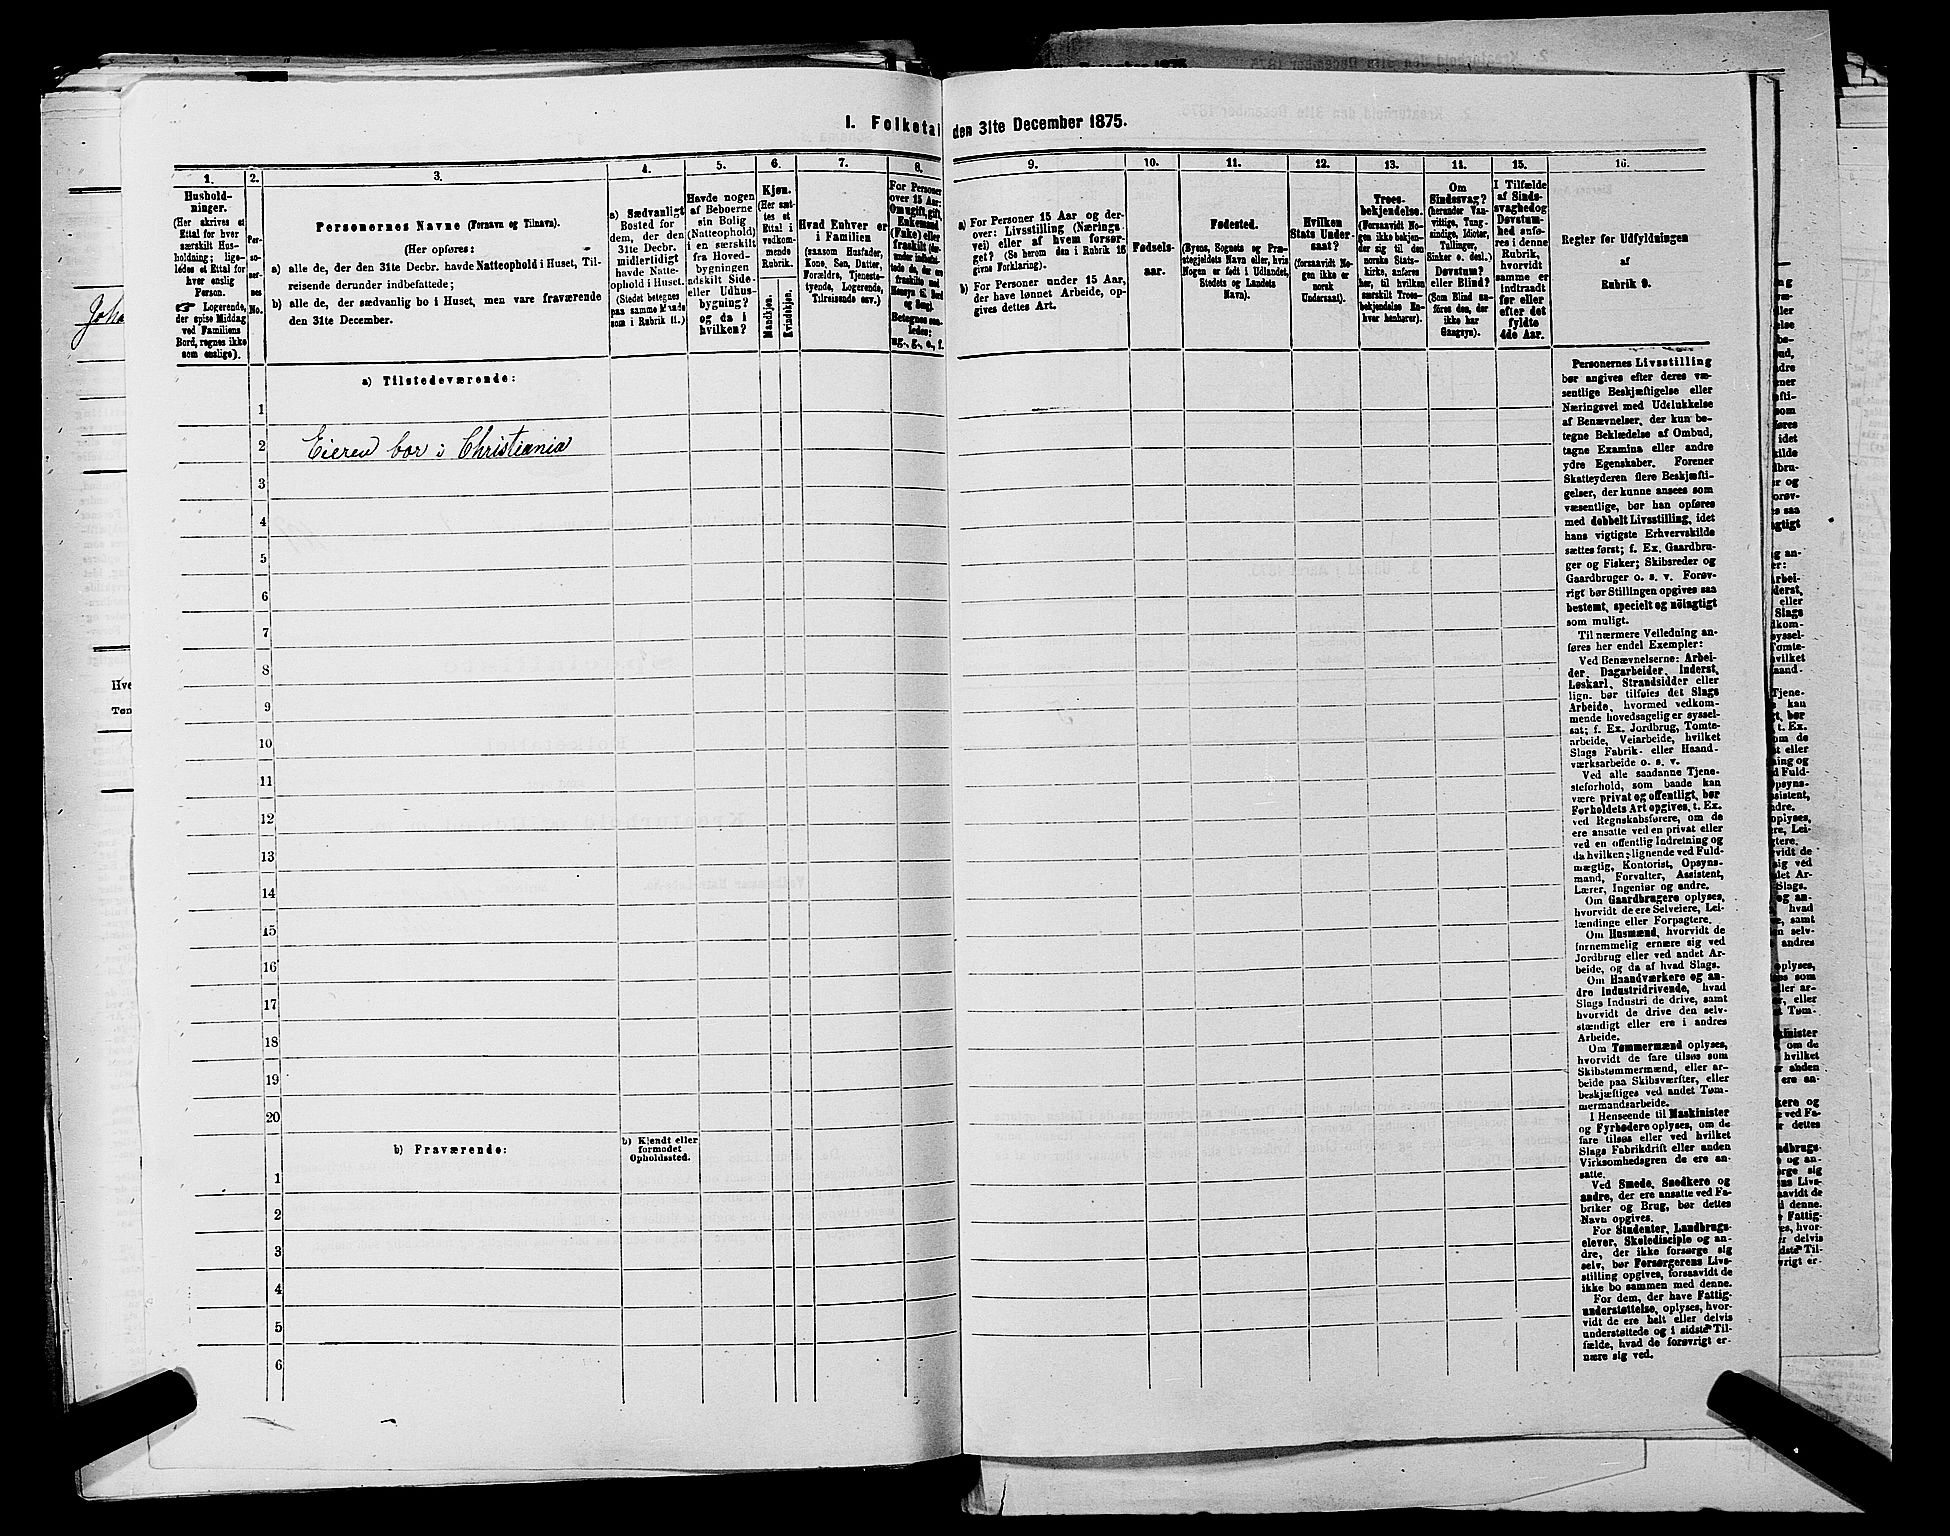 I. Folketal den 31te December 1875.
1. 2. 3. 4. 5. 6. 7. 8. 9. 10. 11. 12. 13. 14. 15. 16.
Hushold-
ninger.
(Her skrives et
Ettal for hver
særskilt Hus-
holdning; lige-
ledes et Ettal for
hver enslig
Person.
☛ Logerende,
der spise Middag
ved Familiens
Bord, regnes ikke
som enslige).
Per-
so-
ner-
nes
No.
Personernes Navne (Fornavn og Tilnavn).
(Her opføres:
a) alle de, der den 31te Decbr. havde Natteophold i Huset, Til-
reisende derunder indbefattede;
b) alle de, der sædvanlig bo i Huset, men vare fraværende
den 31te December.
a) Sædvanligt
Bosted for
dem, der den
31te Decbr.
midlertidigt
havde Natte-
ophold i Huset.
(Stedet betegnes
paa samme Maade
som i Rubrik 11.)
Havde nogen
af Beboerne
sin Bolig
(Natteophold)
i en særskilt
fra Hoved-
bygningen
adskilt Side-
eller Udhus-
bygning?
og da i
hvilken?
Kjøn.
(Her sæt-
tes et
Ettal i
vedkom-
mende
Rubrik.
Mandkjøn.
Kvindekjøn.
Hvad Enhver er
i Familien
(saasom Husfader,
Kone, Søn, Datter,
Forældre, Tjeneste-
tyende, Logerende,
Tilreisende osv.)
For Personer
over 15 Aar:
Om ugift, gift,
Enkemand
(Enke) eller
fraskilt
ug., g., e., f.
a) For Personer 15 Aar og der-
over: Livsstilling (Nærings-
vei) eller af hvem forsør-
get? (Se herom den i Rubrik 16
givne Forklaring).
b) For Personer under 15 Aar,
der have lønnet Arbeide, op-
gives dettes Art.
Fødsels-
aar.
Fødested.
(Byens, Sognets og Præ-
stegjeldets Navn eller, hvis
Nogen er født i Udlandet,
Stedets og Landets
Navn).
Hvilken
Stats Under-
saat?
(forsaavidt No-
gen ikke er
norsk
Undersaat).
Troes-
bekjendelse.
(Forsaavidt No-
gen ikke bekjen-
der sig til den
norske Stats-
kirke, anføres
her, til hvilken
særskilt Troes-
bekjendelse En-
hver henhører).
Om
Sindssvag?
(herunder Van-
vittige, Tung-
sindige, Idioter,
Tullinger,
Sinker o. desl.)
Døvstum?
eller Blind?
(Som Blind an-
føres den, der
ikke har
Gangsyn).
I Tilfælde
af Sinds-
svaghed og
Døvstum-
hed anfø-
res i denne
Rubrik,
hvorvidt
samme er
indtraadt
før eller
efter det
fyldte
4de Aar.
Regler for Udfyldningen
af
Rubrik 9.
a) Tilstedeværende:
1
2 Eieren bor i Christiania
3
4
5
6
7
8
9
10
11
12
13
14
15
16
17
18
19
20
b) Fraværende:
b) Kjendt eller
formodet
Opholdssted.
1
2
3
4
5
6
Personernes Livsstilling
bør angives efter deres væ-
sentlige Beskjæftigelse eller
Næringsvei med Udelukkelse
af Benævnelser, der kun be-
tegne Beklædelse af Ombud,
tagne Examina eller andre
ydre Egenskaber. Forener
Skatteyderen flere Beskjæfti-
gelser, der kunne ansees som
væsentlige, bør han opføres
med dobbelt Livsstilling, idet
hans vigtigste Erhvervskilde
sættes først; f. Ex. Gaardbru-
ger og Fisker; Skibsreder og
Gaardbruger o. s. v. Forøv-
rigt bør Stillingen opgives saa
bestemt, specielt og nöiagtigt
som muligt.
Til nærmere Veiledning an-
føres her endel Exempler:
Ved Benævnelserne: Arbei-
der, Dagarbeider, Inderst,
Løskarl, Strandsidder eller
lign. bør tilføies det Slags
Arbeide, hvormed vedkom-
mende hovedsagelig er syssel-
sat; f. Ex. Jordbrug, Tomte-
arbeide, Veiarbeide, hvilket
Slags Fabrik- eller Haand-
værksarbeide o. s. v.
Ved alle saadanne Tjene-
steforhold, som baade kan
være privat og offentligt, bør
Forholdets Art opgives, t. Ex.
ved Regnskabsførere, om de
ere ansatte ved en privat eller
ved en offentlig Indretning og
da hvilken; lignende ved Fuld-
mægtig, Kontorist, Opsyns-
mand, Forvalter, Assistent,
Lærer, Ingeniør og andre.
Om Gaardbrugere oplyses,
hvorvidt de ere Selveiere, Lei-
lændinge eller Forpagtere.
Om Husmænd, hvorvidt de
fornemmelig ernære sig ved
Jordbrug eller ved andet Ar-
beide, og da af hvad Slags.
Om Haandværkere og an-
dre Industridrivende, hvad
Slags Industri de drive, samt
hvorvidt de drive den selv-
stændigt eller ere i andres
Arbeide.
Om Tømmermænd oplyses,
hvorvidt de fare tilsøs som
Skibstømmermænd, eller ar-
beide paa Skibsværfter, eller
beskjæftiges ved andet Tøm-
mermandsarbeide.
I Henseende til Maskinister
og Fyrbødere oplyses, om de
fare tilsøs eller ved hvilket
Slags Fabrikdrift eller anden
Virksomhedsgren de ere an-
satte.
Ved Smede, Snedkere og
andre, der ere ansatte ved Fa-
briker og Brug, bør dettes
Navn opgives.
For Studenter, Landbrugs-
elever, Skoledisciple og an-
dre, der ikke forsørge sig
selv, bør Forsørgerens Livs-
stilling opgives, forsaavidt de
ikke bo sammen med denne.
For dem, der have Fattig-
understøttelse, oplyses, hvor-
vidt de ere helt eller delvis
understøttede og i sidste Til-
fælde, hvad de forøvrigt er-
nære sig ved.